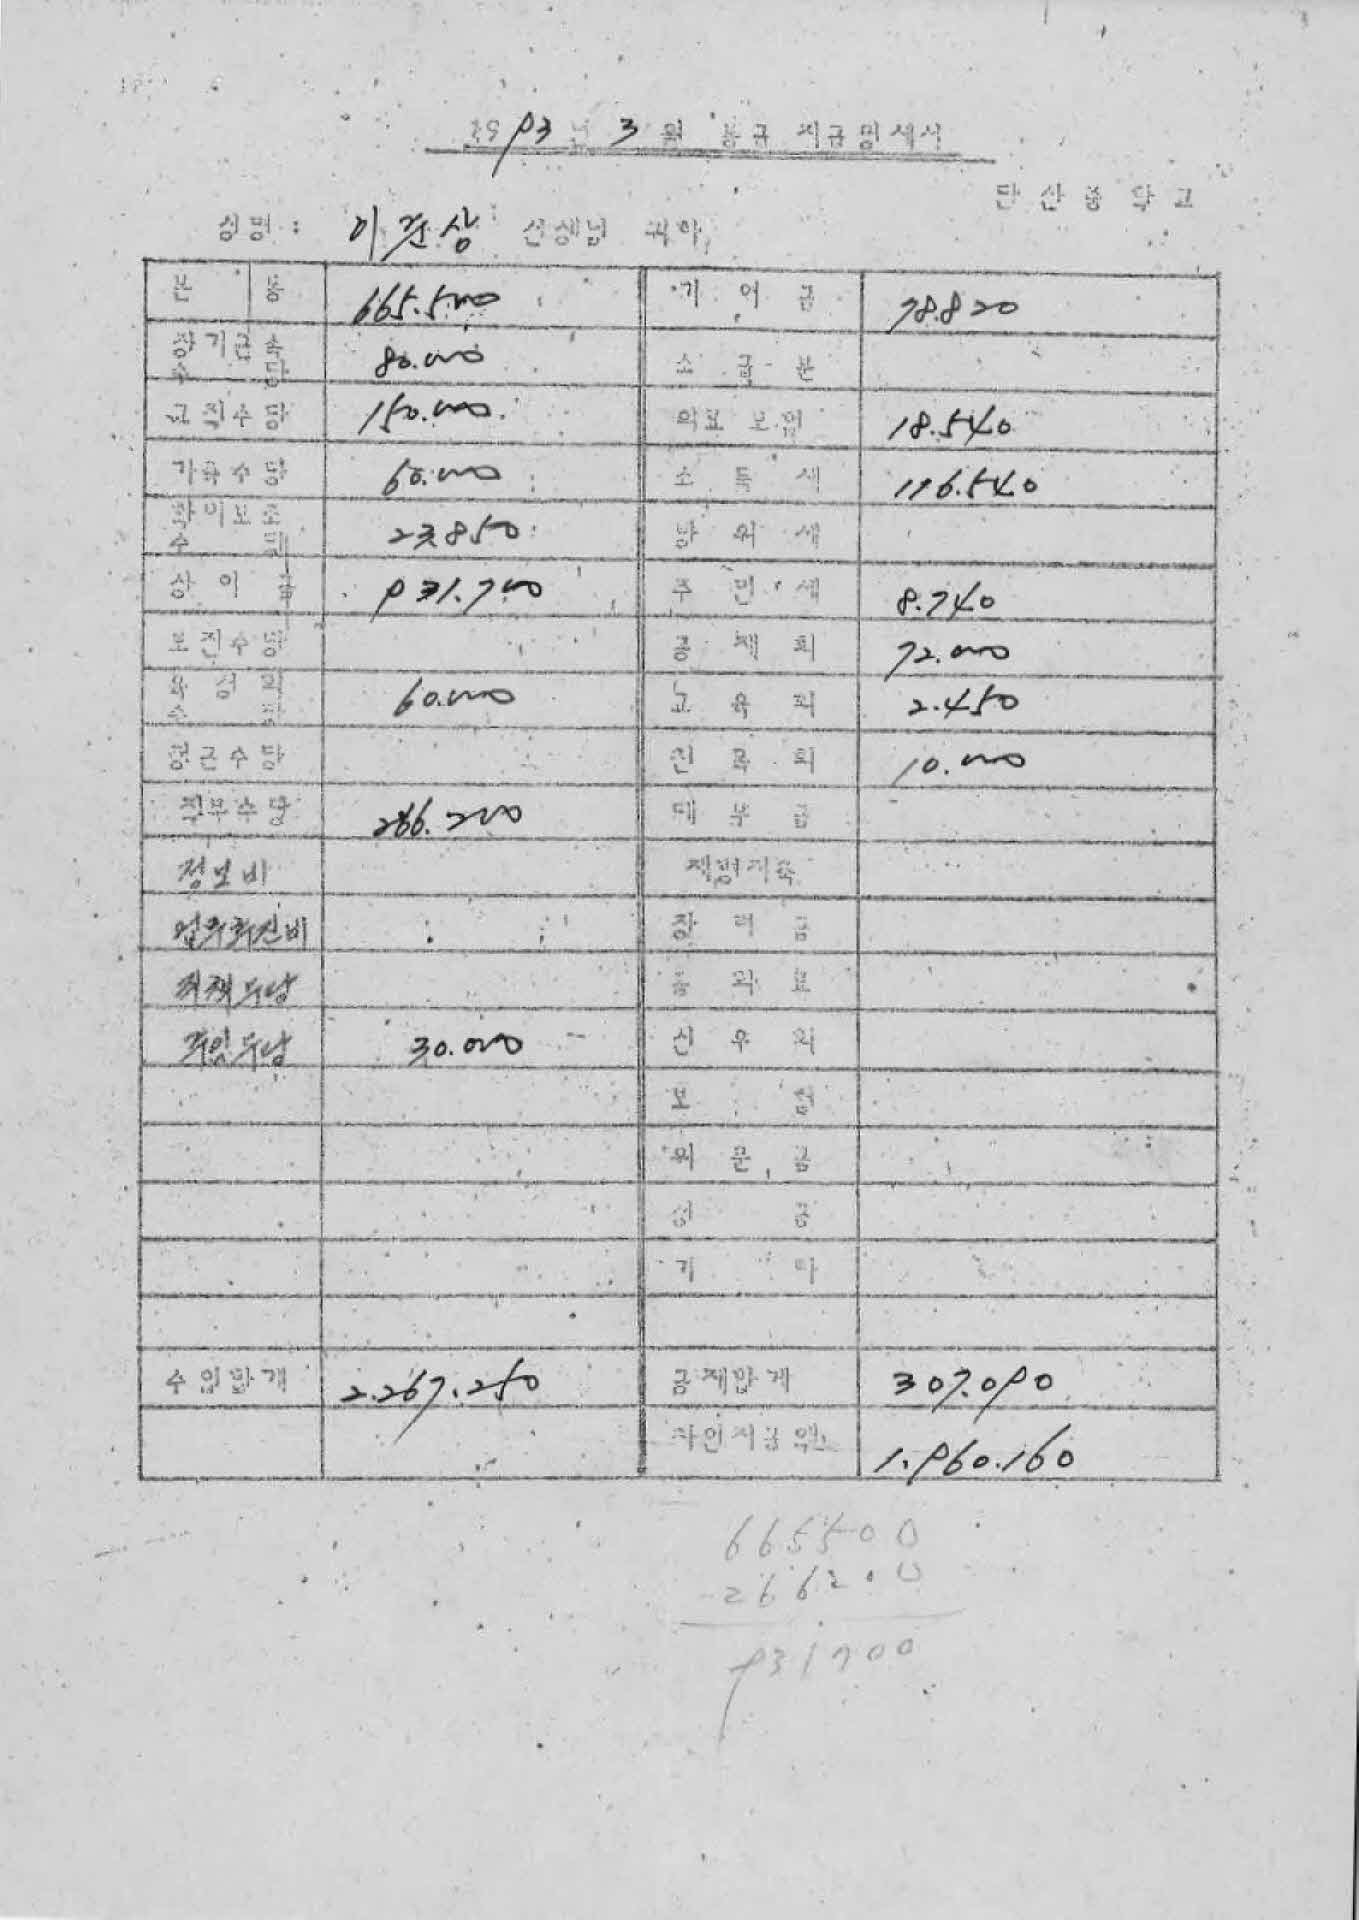 1993년 3월 봉급 지급명세서
단산중학교
성명 : 이준상 선생님 귀하
본 봉 665.500 기여금 78.820
장기근속수당 80.000 소급분
교직수당 150.000 의료보험 18.540
가족수당 60.000 소득세 116.540
수당 23.850 방위세
상여금 931.700 주민세 8.740
보전수당 공제회 72.000
육성회수당 60.000 교육회 2.450
친목회 10.000
직무수당 266.200 대부금
정보비 재형저축
업무추진비 장려금
직책수당
주임수당 30.000 신우회
보 험
위문금
성 금
기 타
수입합계 2.267.250 공제합계 307.090
차인지급액 1.960.160
665500
266200
931700